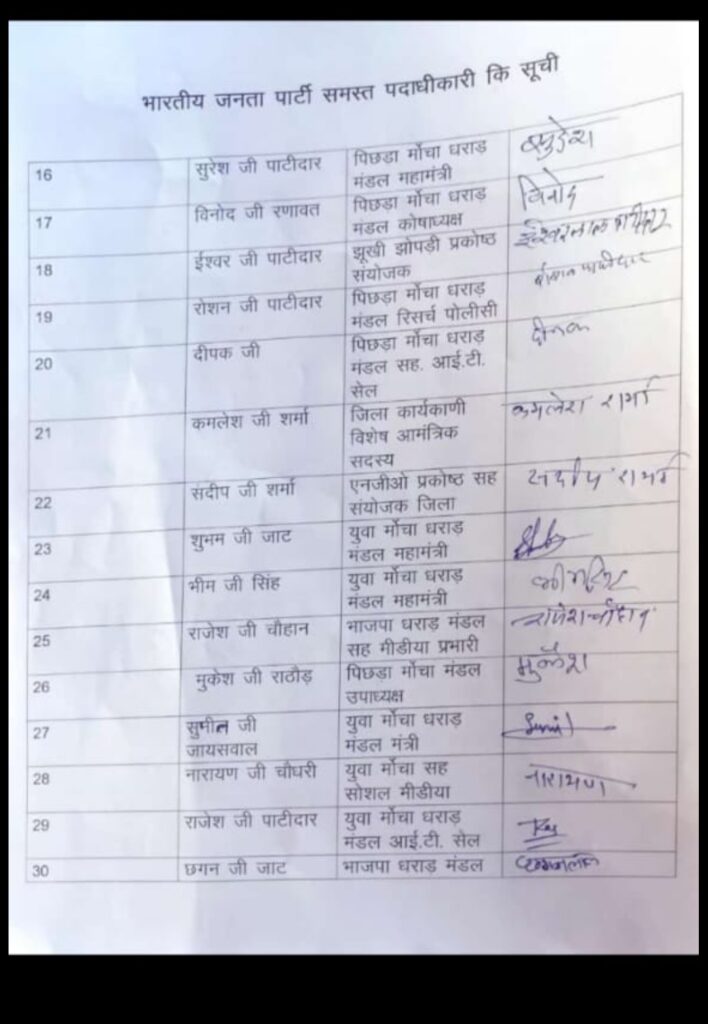 भारतीय जनता पार्टी समस्त पदाधीकारी कि सूची
16 सुरेश जी पाटीदार पिछडा मोंचा धराड़
मंडल महामंत्री
17 विनोद जी रणावत पिछडा मोंचा धराड़ विनोद
मंडल कोषाध्यक्ष
18 ईश्वर जी पाटीदार झूखी झोपडी प्रकोष्ठ ईश्वरलाल पाटीदार
संयोजक
19 रोशन जी पाटीदार पिछडा मोंचा धराड़ पाटीदार
मंडल रिसर्च पोलीसी
20 दीपक जी पिछडा मोंचा धराड़ दीपक
मंडल सह. आई.टी.
सेल
21 कमलेश जी शर्मा जिला कार्यकाणी कमलेश शर्मा
विशेष आमंत्रिक
सदस्य
22 संदीप जी शर्मा एनजीओ प्रकोष्ठ सह संदीप शर्मा
संयोजक जिला
23 शुमम जी जाट युवा मोंचा धराड़
मंडल महामंत्री
24 भीम जी सिंह युवा मोंचा धराड़
मंडल महामंत्री
25 राजेश जी चौहान भाजपा धराड़ मंडल राजेश चौहान
सह मीडीया प्रभारी
26 मुकेश जी राठौड़ पिछडा मोंचा मंडल मुकेश
उपाध्यक्ष
27 सुमीत जी युवा मोंचा धराड़
जायसवाल मंडल मंत्री
28 नारायण जी चौघरी युवा मोंचा सह नारायण
सोशल मीडीया
29 राजेश जी पाटीदार युवा मोंचा धराड़
मंडल आई.टी. सेल
30 छगन जी जाट भाजपा धराड़ मंडल